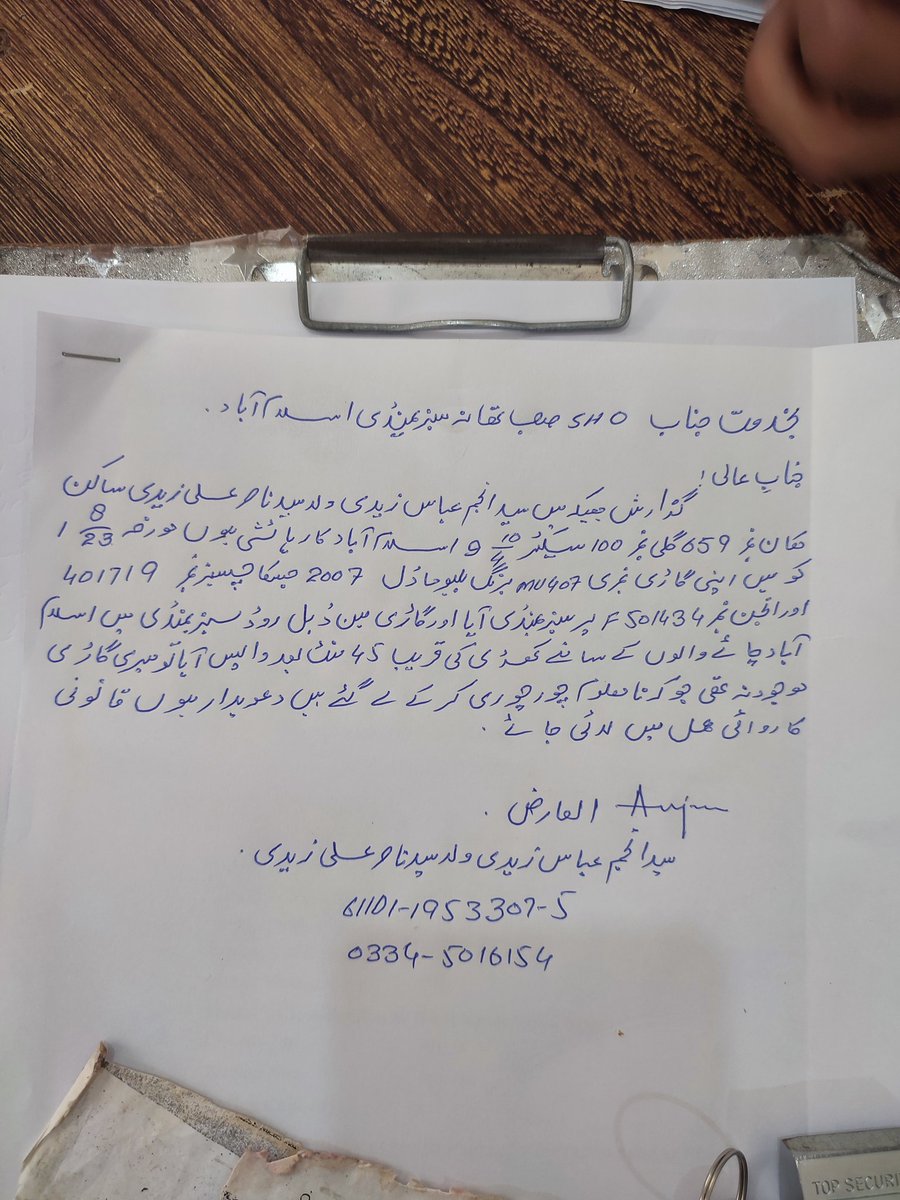 بخدمت جناب SHO صاحب تھانہ سبزیمنڈی اسلام آباد۔
جناب عالی!
گذارش ہیکہ میں سید انجم عباس زیدی ولد سید ناصر علی زیدی ساکن
مکان نمبر 659 گلی نمبر 100 سیکٹر 9 10/4 اسلام آباد کا رہائشی ہوں مورخہ 1 8/23
کو میں اپنی گاڑی نمبری MU407 برنگ بلیو ماڈل 2007 جسکا چیسز نمبر 401719
اور انجن نمبر F501434 پر سبزیمنڈی آیا اور گاڑی مین ڈبل روڈ سبزیمنڈی میں اسلام
آباد چائے والوں کے سامنے کھڑی کی قریب 45 منٹ بعد واپس آیا تو میری گاڑی
موجود نہ تھی جو کہ نا معلوم چور چوری کر کے لے گئے ہیں دعویدار ہوں قانونی
کاروائی عمل میں لائی جائے۔
العارض Anjum
سید انجم عباس زیدی ولد سید ناصر علی زیدی۔
61101-1953307-5
0334-5016154
TOP SECURI